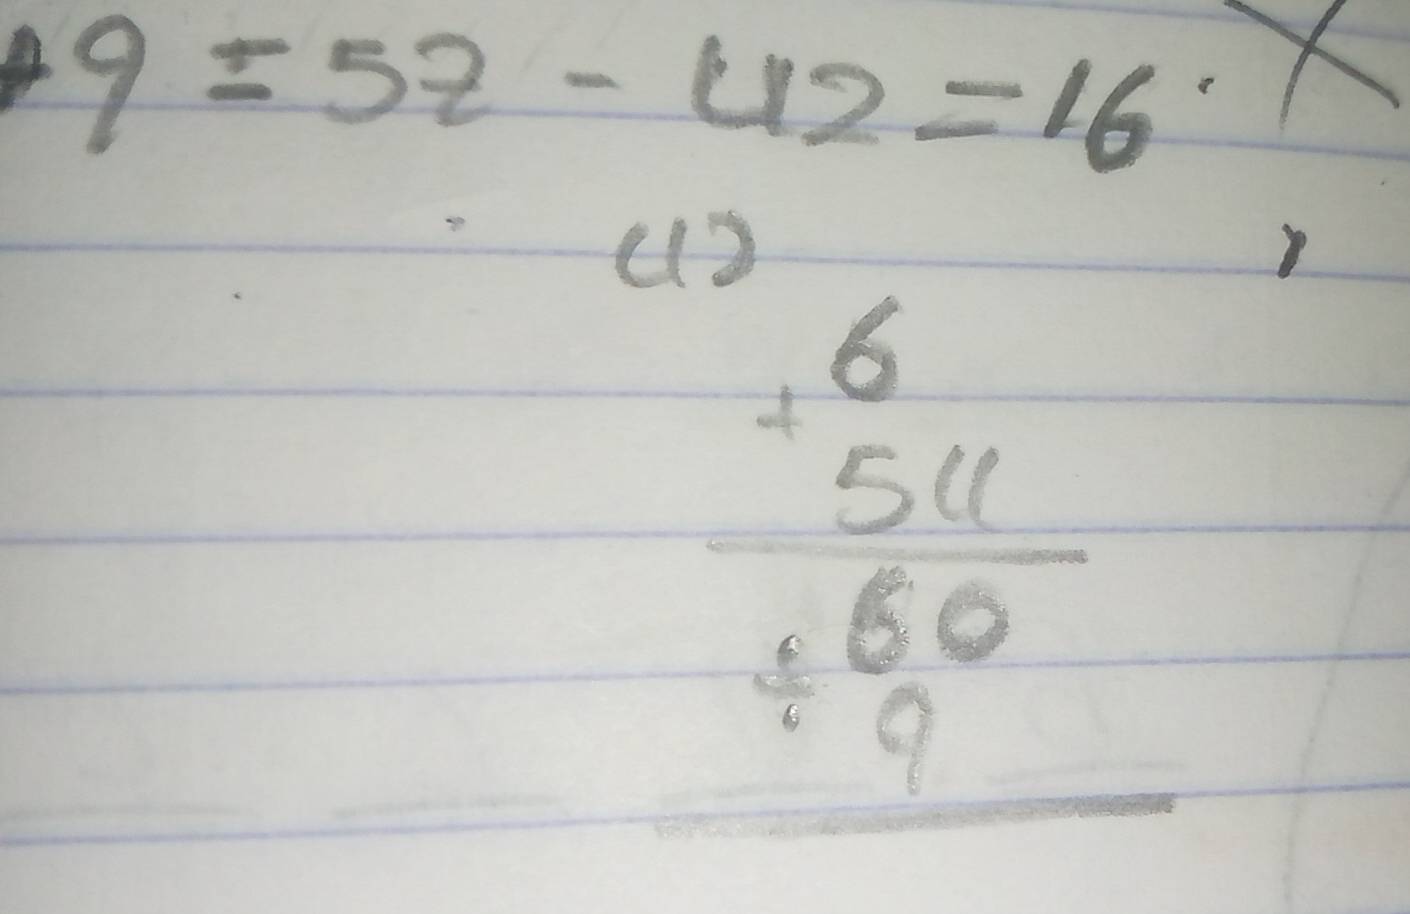 +9 = 52 - 42 = 16.
42
6
+
54
60
÷
9